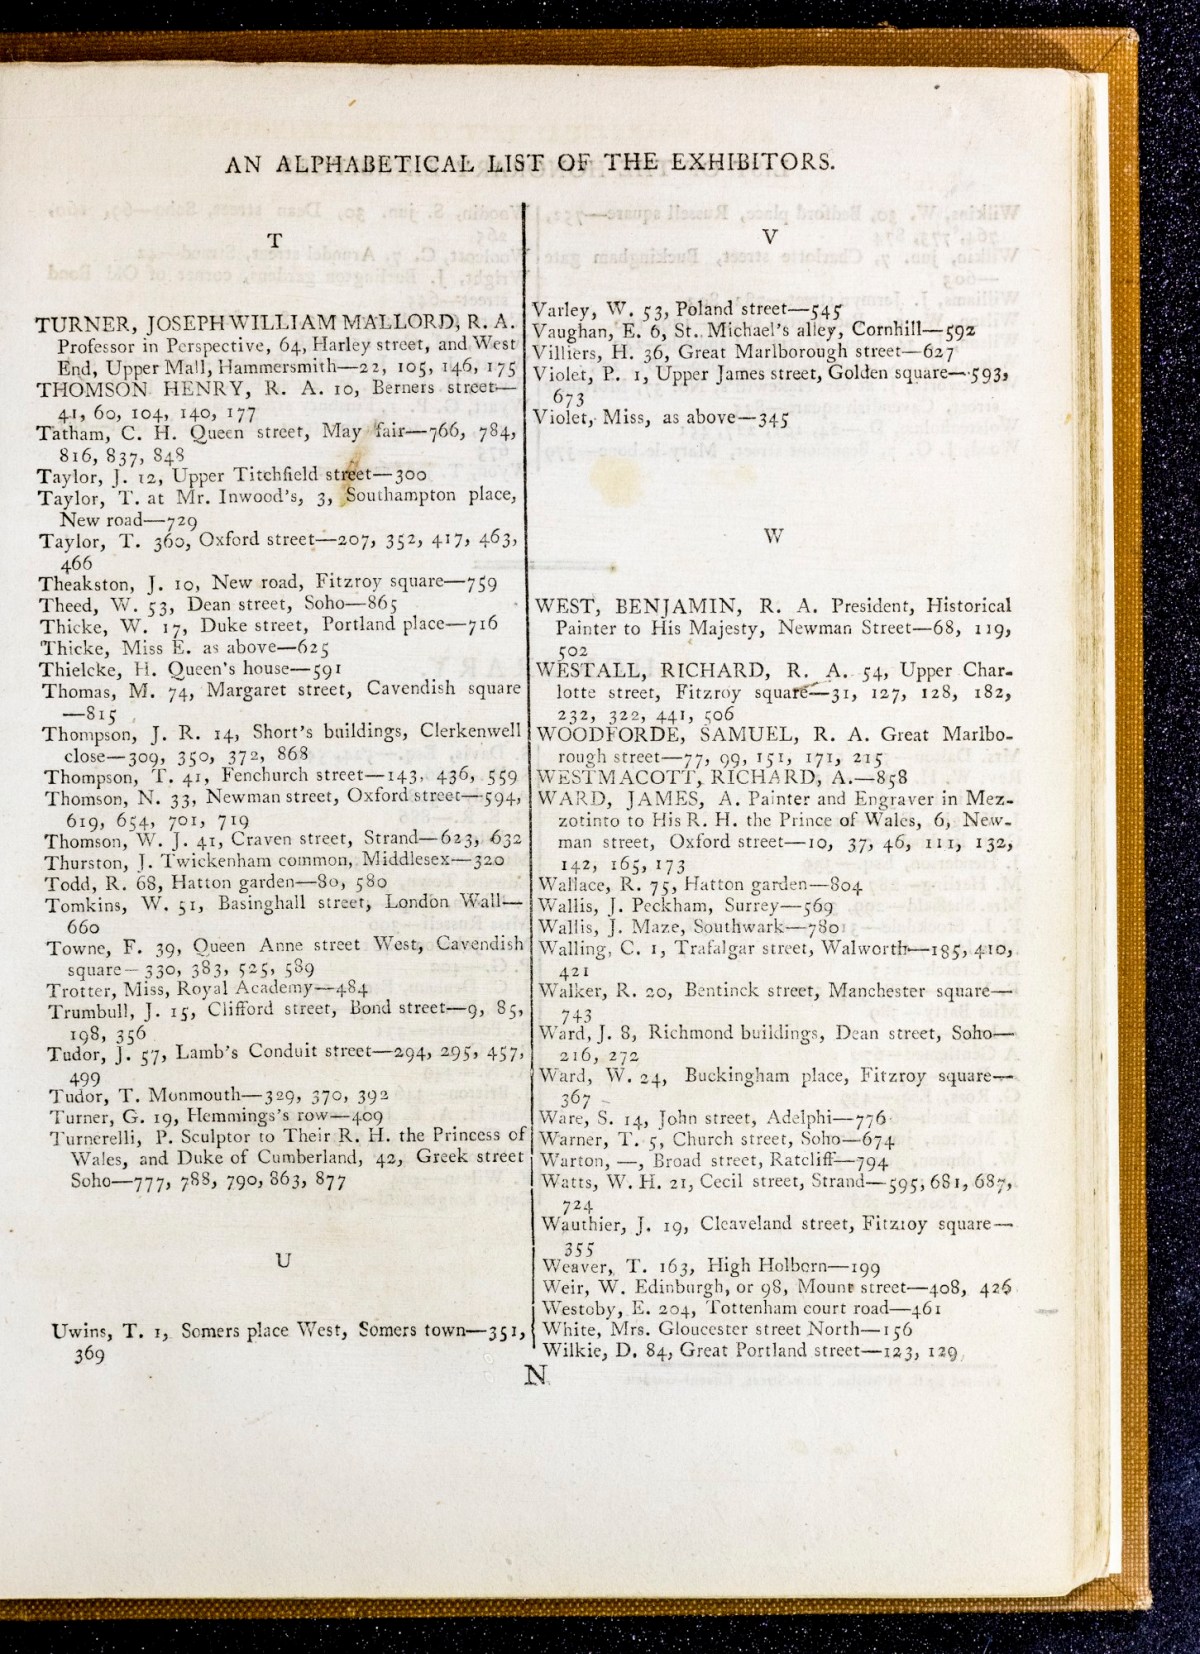 AN ALPHABETICAL LIST OF THE EXHIBITORS.
T
TURNER, JOSEPH WILLIAM MALLORD, R. A.
Professor in Perspective, 64, Harley street, and West
End, Upper Mall, Hammersmith—22, 105, 146, 175
THOMSON HENRY, R. A. 10, Berners street—
41, 60, 104, 140, 177
Tatham, C. H. Queen street, May fair—766, 784,
816, 837, 848
Taylor, J. 12, Upper Titchfield street—300
Taylor, T. at Mr. Inwood's, 3, Southampton place,
New road—729
Taylor, T. 360, Oxford street—207, 352, 417, 463,
466
Theakston, J. 10, New road, Fitzroy square—759
Theed, W. 53, Dean street, Soho—865
Thicke, W. 17, Duke street, Portland place—716
Thicke, Miss E. as above—625
Thielcke, H. Queen's house—591
Thomas, M. 74, Margaret street, Cavendish square
—815
Thompson, J. R. 14, Short's buildings, Clerkenwell
close—309, 350, 372, 868
Thompson, T. 41, Fenchurch street—143, 436, 559
Thomson, N. 33, Newman street, Oxford street—594,
619, 654, 701, 719
Thomson, W. J. 41, Craven street, Strand—623, 632
Thurston, J. Twickenham common, Middlesex—320
Todd, R. 68, Hatton garden—80, 580
Tomkins, W. 51, Basinghall street, London Wall—
660
Towne, F. 39, Queen Anne street West, Cavendish
square—330, 383, 525, 589
Trotter, Miss, Royal Academy—484
Trumbull, J. 15, Clifford street, Bond street—9, 85,
198, 356
Tudor, J. 57, Lamb's Conduit street—294, 295, 457,
499
Tudor, T. Monmouth—329, 370, 392
Turner, G. 19, Hemmings's row—409
Turnerelli, P. Sculptor to Their R. H. the Princess of
Wales, and Duke of Cumberland, 42, Greek street
Soho—777, 788, 790, 863, 877
U
Uwins, T. 1, Somers place West, Somers town—351,
369
V
Varley, W. 53, Poland street—545
Vaughan, E. 6, St. Michael's alley, Cornhill—592
Villiers, H. 36, Great Marlborough street—627
Violet, P. 1, Upper James street, Golden square—593,
673
Violet, Miss, as above—345
W
WEST, BENJAMIN, R. A. President, Historical
Painter to His Majesty, Newman Street—68, 119,
502
WESTALL, RICHARD, R. A. 54, Upper Char-
lotte street, Fitzroy square—31, 127, 128, 182,
232, 322, 441, 506
WOODFORDE, SAMUEL, R. A. Great Marlbo-
rough street—77, 99, 151, 171, 215
WESTMACOTT, RICHARD, A.—858
WARD, JAMES, A. Painter and Engraver in Mez-
zotinto to His R. H. the Prince of Wales, 6, New-
man street, Oxford street—10, 37, 46, 111, 132,
142, 165, 173
Wallace, R. 75, Hatton garden—804
Wallis, J. Peckham, Surrey—569
Wallis, J. Maze, Southwark—780
Walling, C. 1, Trafalgar street, Walworth—185, 410,
421
Walker, R. 20, Bentinck street, Manchester square—
743
Ward, J. 8, Richmond buildings, Dean street, Soho—
216, 272
Ward, W. 24, Buckingham place, Fitzroy square—
367
Ware, S. 14, John street, Adelphi—776
Warner, T. 5, Church street, Soho—674
Warton, —, Broad street, Ratcliff—794
Watts, W. H. 21, Cecil street, Strand—595, 681, 687,
724
Wauthier, J. 19, Cleaveland street, Fitzroy square—
355
Weaver, T. 163, High Holborn—199
Weir, W. Edinburgh, or 98, Mount street—408, 426
Westoby, E. 204, Tottenham court road—461
White, Mrs. Gloucester street North—156
Wilkie, D. 84, Great Portland street—123, 129
N